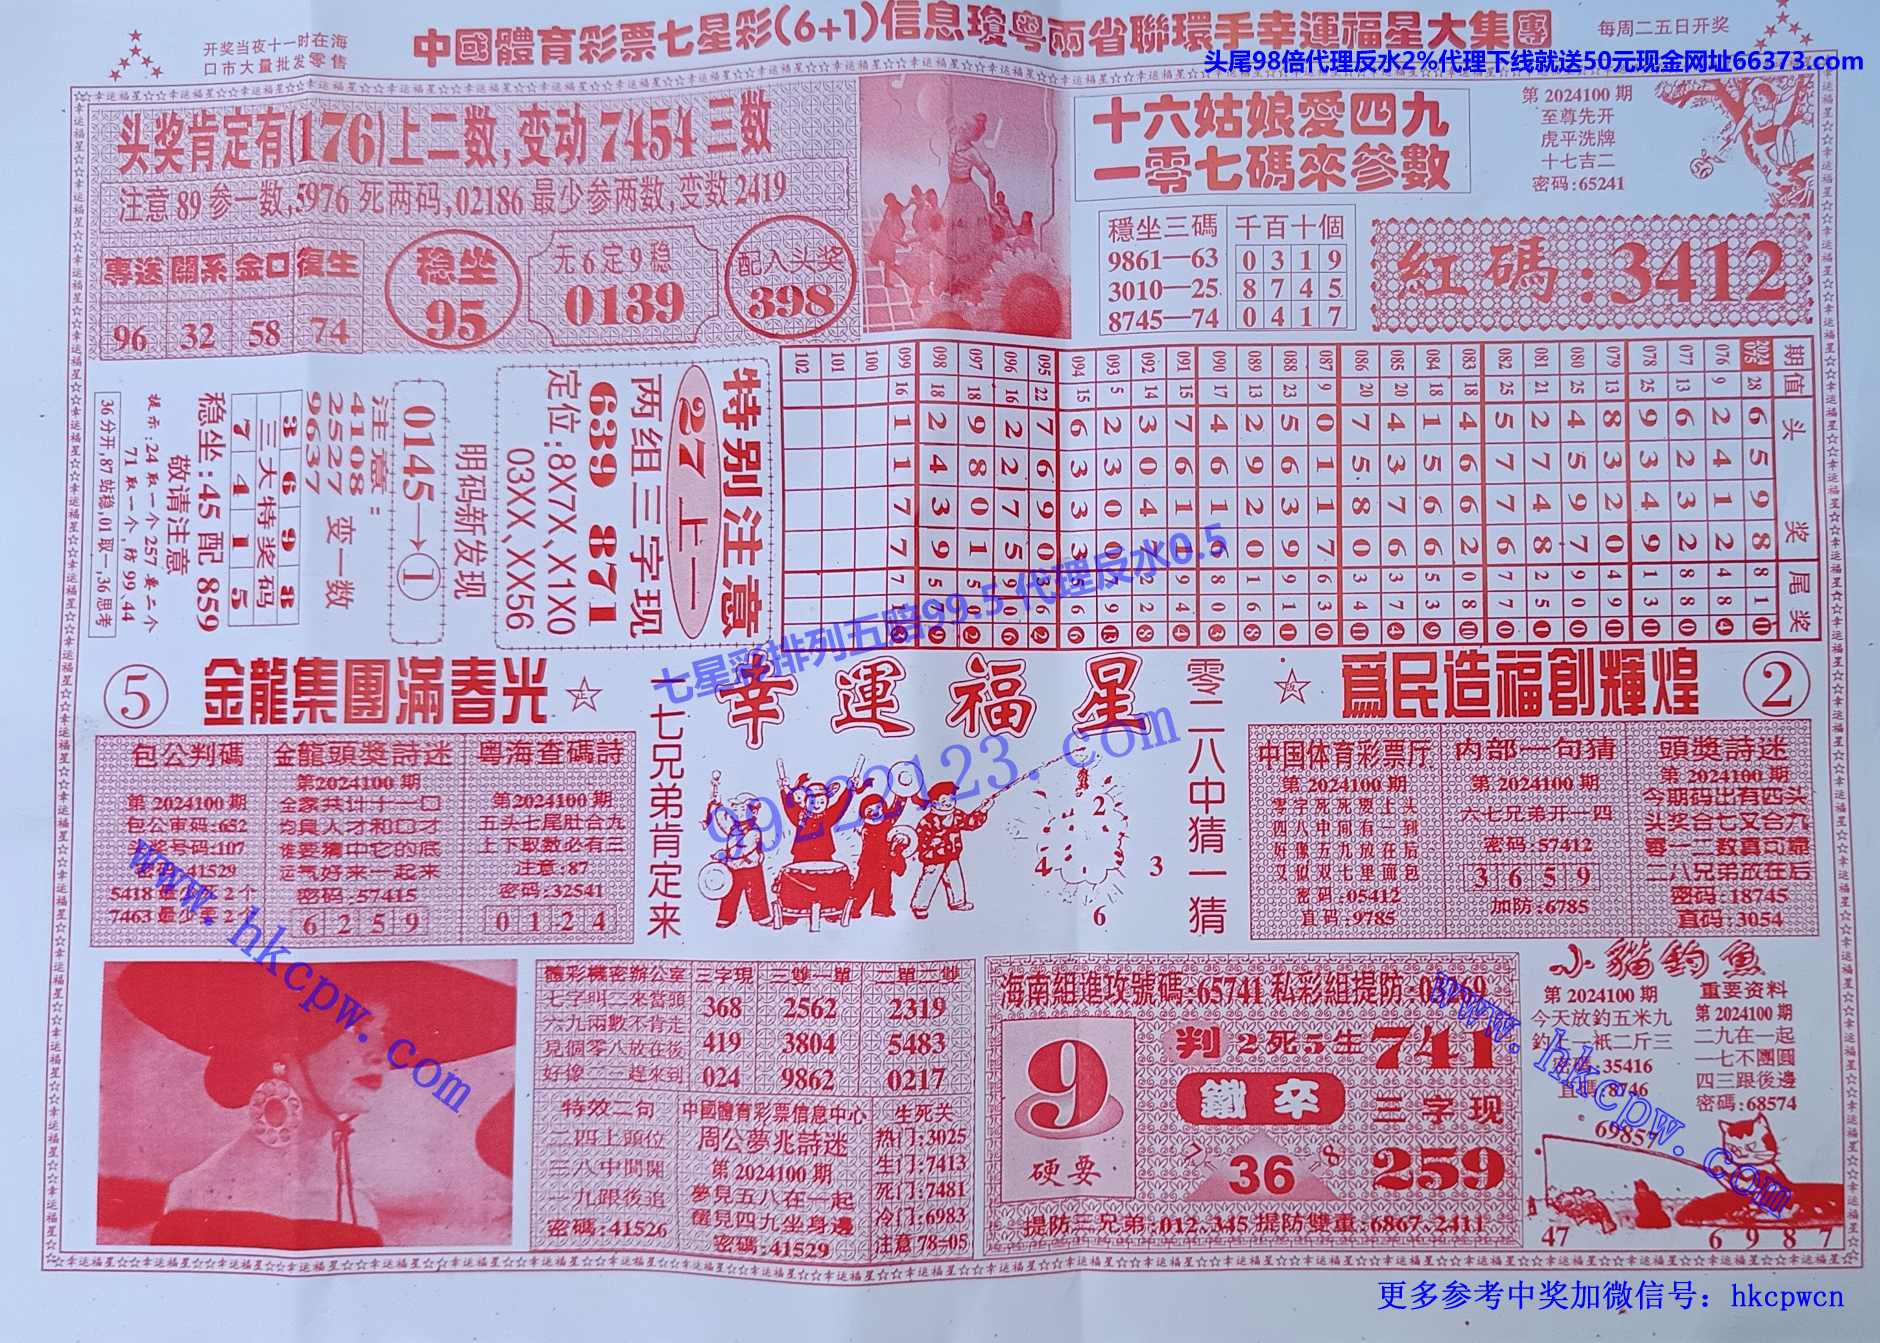 中國體育彩票七星彩(6+1)信息瓊粤兩省聯環手幸運福星大集團
开奖当夜十一时在海
口市大量批发零售
每周二五日开奖
头尾98倍代理反水2%代理下线就送50元现金网址66373.com
头奖肯定有(176)上二数,变动7454三数
注意89参一数,5976死两码,02186最少参两数,变数2419
專送 關系 金口 復生
96 32 58 74
稳坐
95
无6定9稳
0139
配入头奖
398
十六姑娘愛四九
一零七碼來參數
第2024100期
至尊先开
虎平洗牌
十七吉二
密码:65241
穩坐三碼
9861—63
3010—25
8745—74
千百十個
0 3 1 9
8 7 4 5
0 4 1 7
紅碼:3412
特别注意
27上一
两组三字现
639 871
定位:8X7X、X1X0
03XX、XX56
明码新发现
0145→①
注意:
4108 变一数
2527
9637
3 6 9 8
三大特奖码
7 4 1 5
稳坐:45配859
敬请注意
提示:24取一个257要二个
71取一个,防99、44
36分开,87站稳,01取一,36思考
期 值 头奖 尾奖
2024075 28 6 5 9 8 8 1
076 9 2 4 1 2 4 8
077 13 6 2 3 2 8 8
078 25 9 3 4 9 1 3
079 13 8 3 2 0 4 9
080 25 4 5 9 7 9 0
081 21 2 7 4 8 2 5
082 25 5 7 7 6 7 7
083 18 4 6 6 2 0 8
084 18 1 5 6 6 5 3
085 20 4 3 7 6 3 7
086 20 7 5 8 0 3 4
087 9 0 1 1 7 6 3
088 23 5 6 3 9 9 1
089 13 2 9 2 0 1 6
090 17 4 6 1 6 8 0
091 15 7 6 1 1 9 4
092 14 3 0 4
093 5 2 3 0 0
094 15 6 3 3 3
095 22 7 6 9 0 3 6
096 16 2 2 7 5 9 0
097 18 9 8 0 1
098 18 2 4 3 9 5
099 16 1 1 7 7 7
100
101
102
七星彩排列五赔99.5 代理反水0.5
⑤ 金龍集團滿春光
包公判碼
第2024100期
包公审码:652
头奖号码:107
密码:41529
金龍頭獎詩迷
第2024100期
全家共计十一口
均具人才和口才
谁要猜中它的底
运气好来一起来
密码:57415
6 2 5 9
粤海查碼詩
第2024100期
五头七尾肚合九
上下取数必有三
注意:87
密码:32541
0 1 2 4
一七兄弟肯定来
幸運福星
零二八中猜一猜
2
4
3
6
99222123.com
爲民造福創輝煌 ②
中国体育彩票厅
第2024100期
零字死死盟上头
四八中间有一到
好像五九放在后
又似双七里面包
密码:05412
直码:9785
内部一句猜
第2024100期
六七兄弟开一四
密码:57412
3 6 5 9
加防:6785
頭獎詩迷
第2024100期
今期码出有四头
头奖合七又合九
零一二数真可靠
二八兄弟放在后
密码:18745
直码:3054
體彩機密辦公室
七字叫二來當頭
六九兩數不肯走
見個零八放在後
好像二三趕來到
三字現
368
419
024
三雙一單
2562
3804
9862
二單二雙
2319
5483
0217
特效二句
二四上頭位
三八中間開
一九跟後追
密碼:41526
中國體育彩票信息中心
周公夢兆詩迷
第2024100期
夢見五八在一起
醒見四九坐身邊
密碼:41529
生死关
热门:3025
生门:7413
死门:7481
冷门:6983
注意78=05
海南組進攻號碼:65741 私彩組提防:
9
硬要
判2死5生741
鐵卒 三字现
7 36 8
259
提防三兄弟:012、345 提防雙重:6867、2411
小貓釣魚
第2024100期
今天放釣五米九
釣上一衹二斤三
密碼:35416
直碼:8746
重要资料
第2024100期
二九在一起
一七不團圓
四三跟後邊
密碼:68574
69857
47
6 9 8 7
www.hkcpw.com
www.hkcpw.com
更多参考中奖加微信号: hkcpwcn